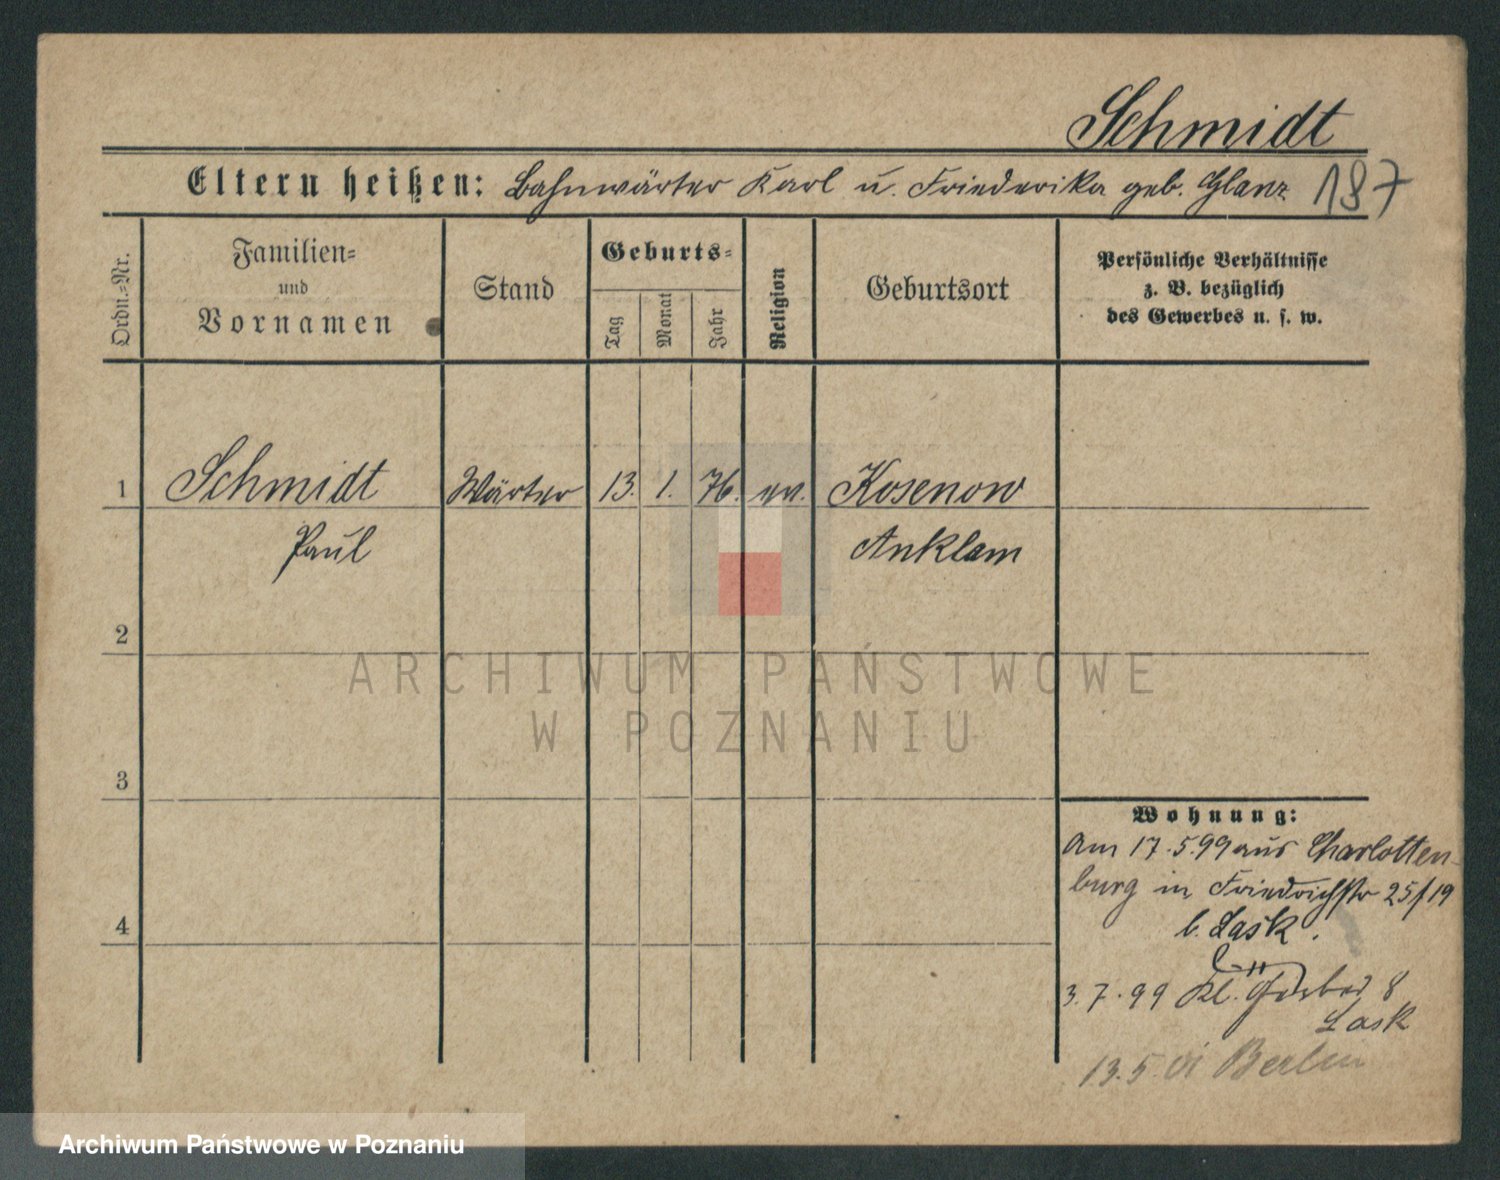 Schmidt
Eltern heißen: Bahnwärter Karl u. Friederika geb. Glanz 187
Ordn.-Nr.
Familien-
und
Vornamen
Stand
Geburts-
Tag
Monat
Jahr
Religion
Geburtsort
Persönliche Verhältnisse
z. B. bezüglich
des Gewerbes u. s. w.
1 Schmidt Wärter 13. 1. 76. ev. Kosenow
Paul Anklam
2
ARCHIWUM PAŃSTWOWE
W POZNANIU
3
Wohnung:
Am 17.5.99 aus Charlotten-
burg in Friedrichstr 25/19
b. Lask.
4
3.7.99 Kl. Gerber 8
Lask
13.5. 01 Berlin
Archiwum Państwowe w Poznaniu